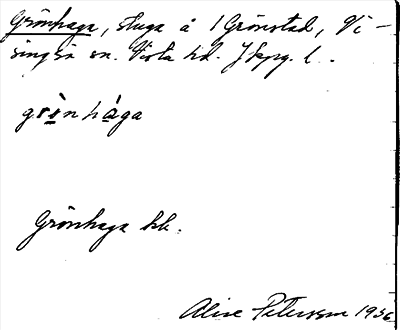 Grönhaga, stuga å 1 Grönstad, Vi-
singsö sn. Vista hd. Jkpg. l.
grö̀nhága
Grönhaga hk.
Alice Petersson 1936